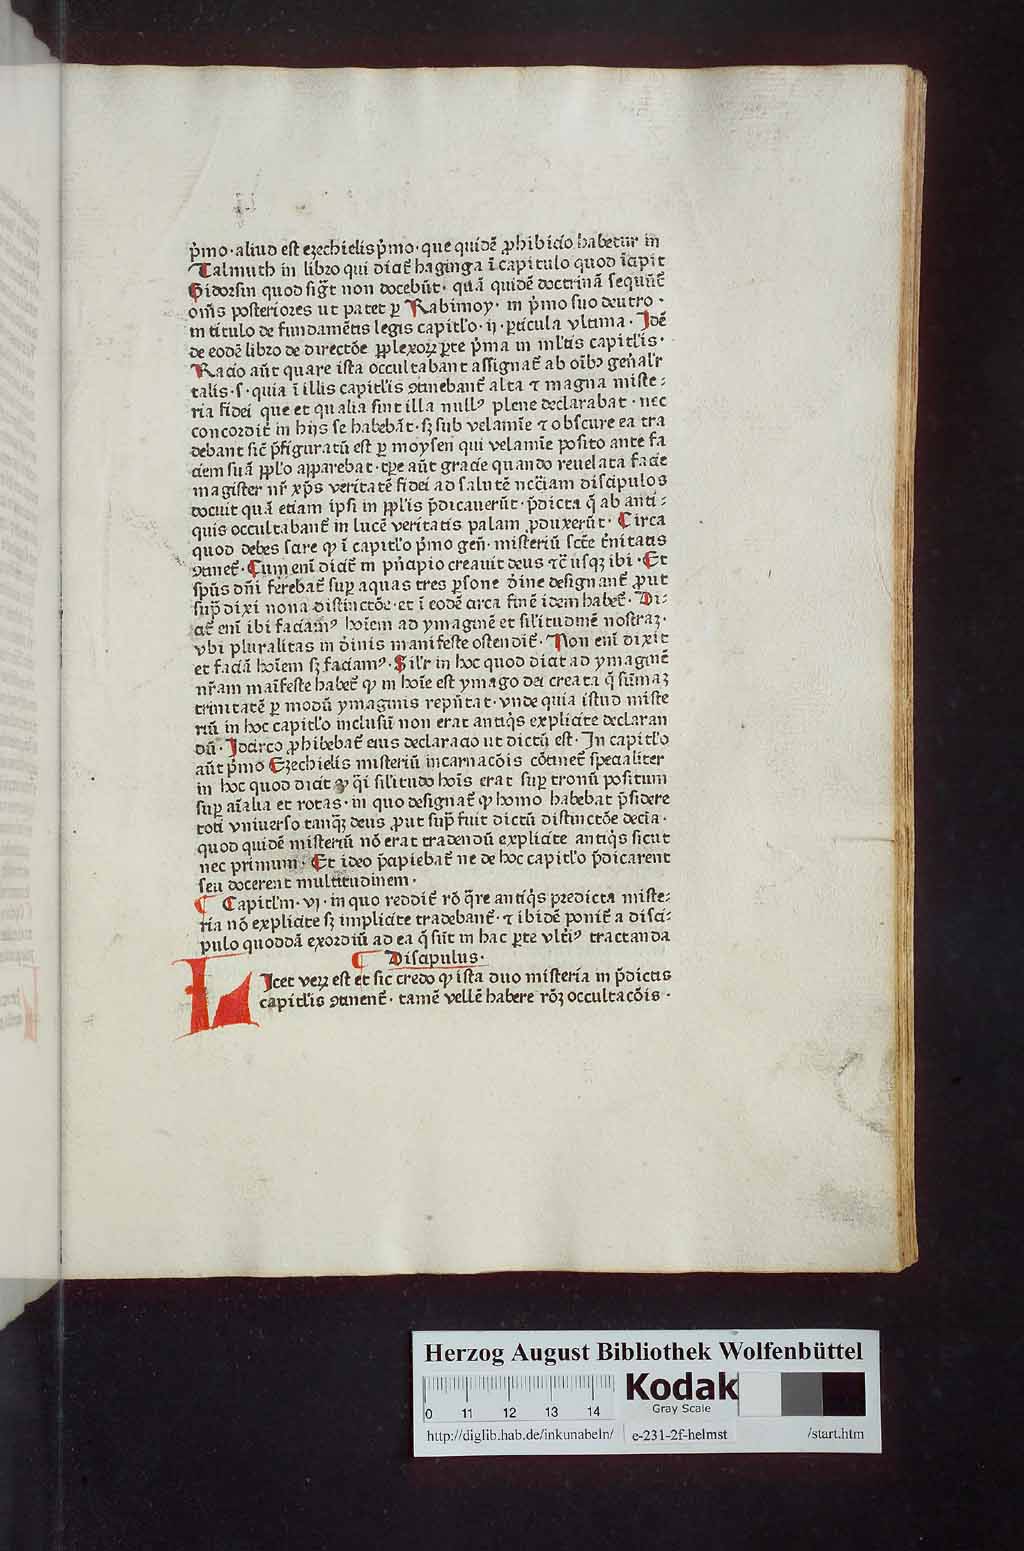 p̓mo · aliud est ezechielis p̓mo · que quidē ꝓhibicio habetur in
Talmuth in libro qui dicit᷑ haginga ī capitulo quod īcipit
Hidorsin quod sigt᷑ non docebūt · quā quidē doctrinā sequūt᷑
om̄s posteriores ut patet ꝑ Rabimoy · in p̓mo suo deutro ·
in titulo de fundamētis legis capitlo · ij · ꝑticula vltima · Idē
de eodē libro de directōe ꝑplexoꝝ ꝑte p̓ma in ml̓tis capitlis ·
Racio aūt quare ista occultabant assignat᷑ ab oībꝰ gen̄alr̓
talis · s · quia ī illis capitlis ꝯtinebant᷑ alta ⁊ magna miste⸗
ria fidei que et qualia sint illa nullꝰ plene declarabat · nec
concordit᷑ in hijs se habebāt · sꝫ sub velamīe ⁊ obscure ea tra
debant sic̄ p̄figuratū est ꝑ moysen qui velamīe posito ante fa
ciem suā pplo apparebat · tꝑe aūt gracie quando reuelata facie
magister nr̄ xp̄s veritatē fidei ad salutē nc̄ciam discipulos
docuit quā etiam ipsi in pplis p̄dicauerūt · p̄dicta q̄ ab anti⸗
quis occultabant᷑ in lucē veritatis palam ꝓduxerūt · Circa
quod debes scire ꝙ ī capitlo p̓mo gen̄ · misteriū scte t̓nitatis
ꝯtinet᷑ · Cum enī dicit᷑ in pn̓cipio creauit deus ⁊c̄ usqꝫ ibi · Et
sp̄us dn̄i ferebat᷑ suꝑ aquas tres ꝑsone d̓ine designant᷑ ꝓut
sup̄ dixi nona distinctōe · et ī eodē circa finē idem habet᷑ · Di⸗
cit᷑ enī ibi faciamꝰ hoīem ad ymaginē et sil̓itudinē nostraꝫ ·
vbi pluralitas in d̓inis manifeste ostendit᷑ · Non enī dixit
et faciā hoīem sꝫ faciamꝰ · Silr̓ in hoc quod dicit ad ymaginē
nr̄am maīfeste habet᷑ ꝙ in hoīe est ymago dei creata q̄ sūmaꝫ
trinitatē ꝑ modū ymaginis rep̄ntat · vnde quia istud miste
riū in hoc capitlo inclusū non erat antiq̓s explicite declaran
dū · Idcirco ꝓhibebat᷑ eius declaracio ut dictū est · In capitlo
aūt p̓mo Ezechielis misteriū incarnacōis cōtinet᷑ specialiter
in hoc quod dicit ꝙ q̄i sil̓itudo hoīs erat suꝑ tronū positum
suꝑ aīalia et rotas · in quo designat᷑ ꝙ homo habebat p̄sidere
toti vniuerso tanqꝫ deus ꝓut sup̄ fuit dictū distinctōe decīa ·
quod quidē misteriū nō erat tradendū explicite antiq̓s sicut
nec primum · Et ideo p̄cipiebat᷑ ne de hoc capitlo p̄dicarent
seu docerent multitudinem ·
¶ Capitlm · vj · in quo reddit᷑ rō q̄re antiq̓s predicta miste⸗
ria nō explicite sꝫ implicite tradebant᷑ · ⁊ ibidē ponit᷑ a disci⸗
pulo quoddā exordiū ad ea q̄ sūt in hac ꝑte vlt̓iꝰ tractanda
¶ Discipulus ·
LIcet veꝝ est et sic credo ꝙ ista duo misteria in p̄dictis
capitlis ꝯtinent᷑ · tamē vellē habere rōꝫ occultacōis ·
Herzog August Bibliothek Wolfenbüttel
0 11 12 13 14
Kodak
Gray Scale
http://diglib.hab.de/inkunabeln/ e-231-2f-helmst /start.htm